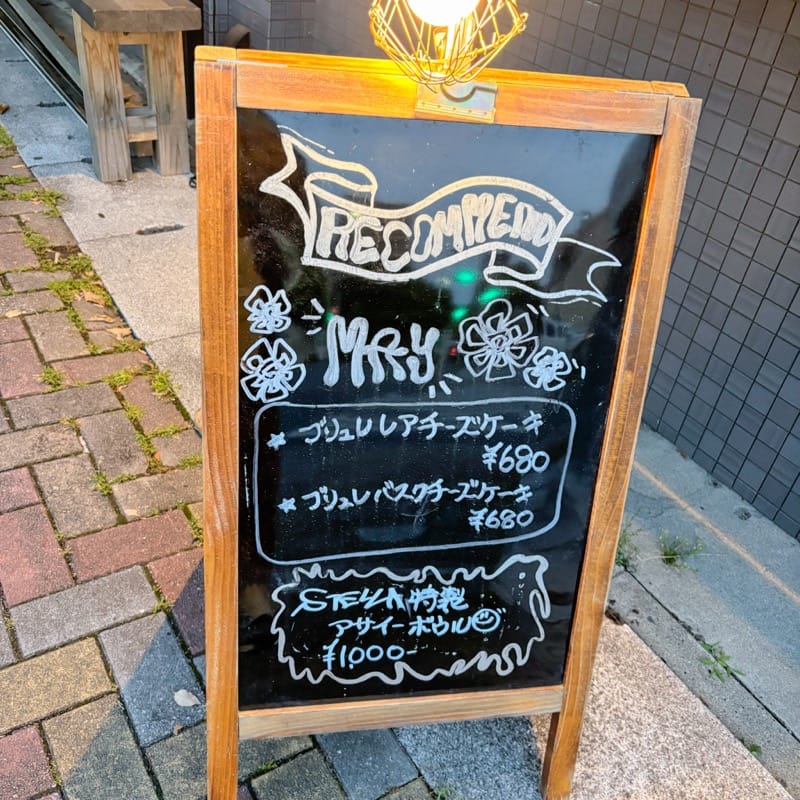 RECOMMEND
MAY
★ ブリュレレアチーズケーキ
¥680
★ ブリュレバスクチーズケーキ
¥680
STELLA 特製
アサイーボウル
¥1,000-